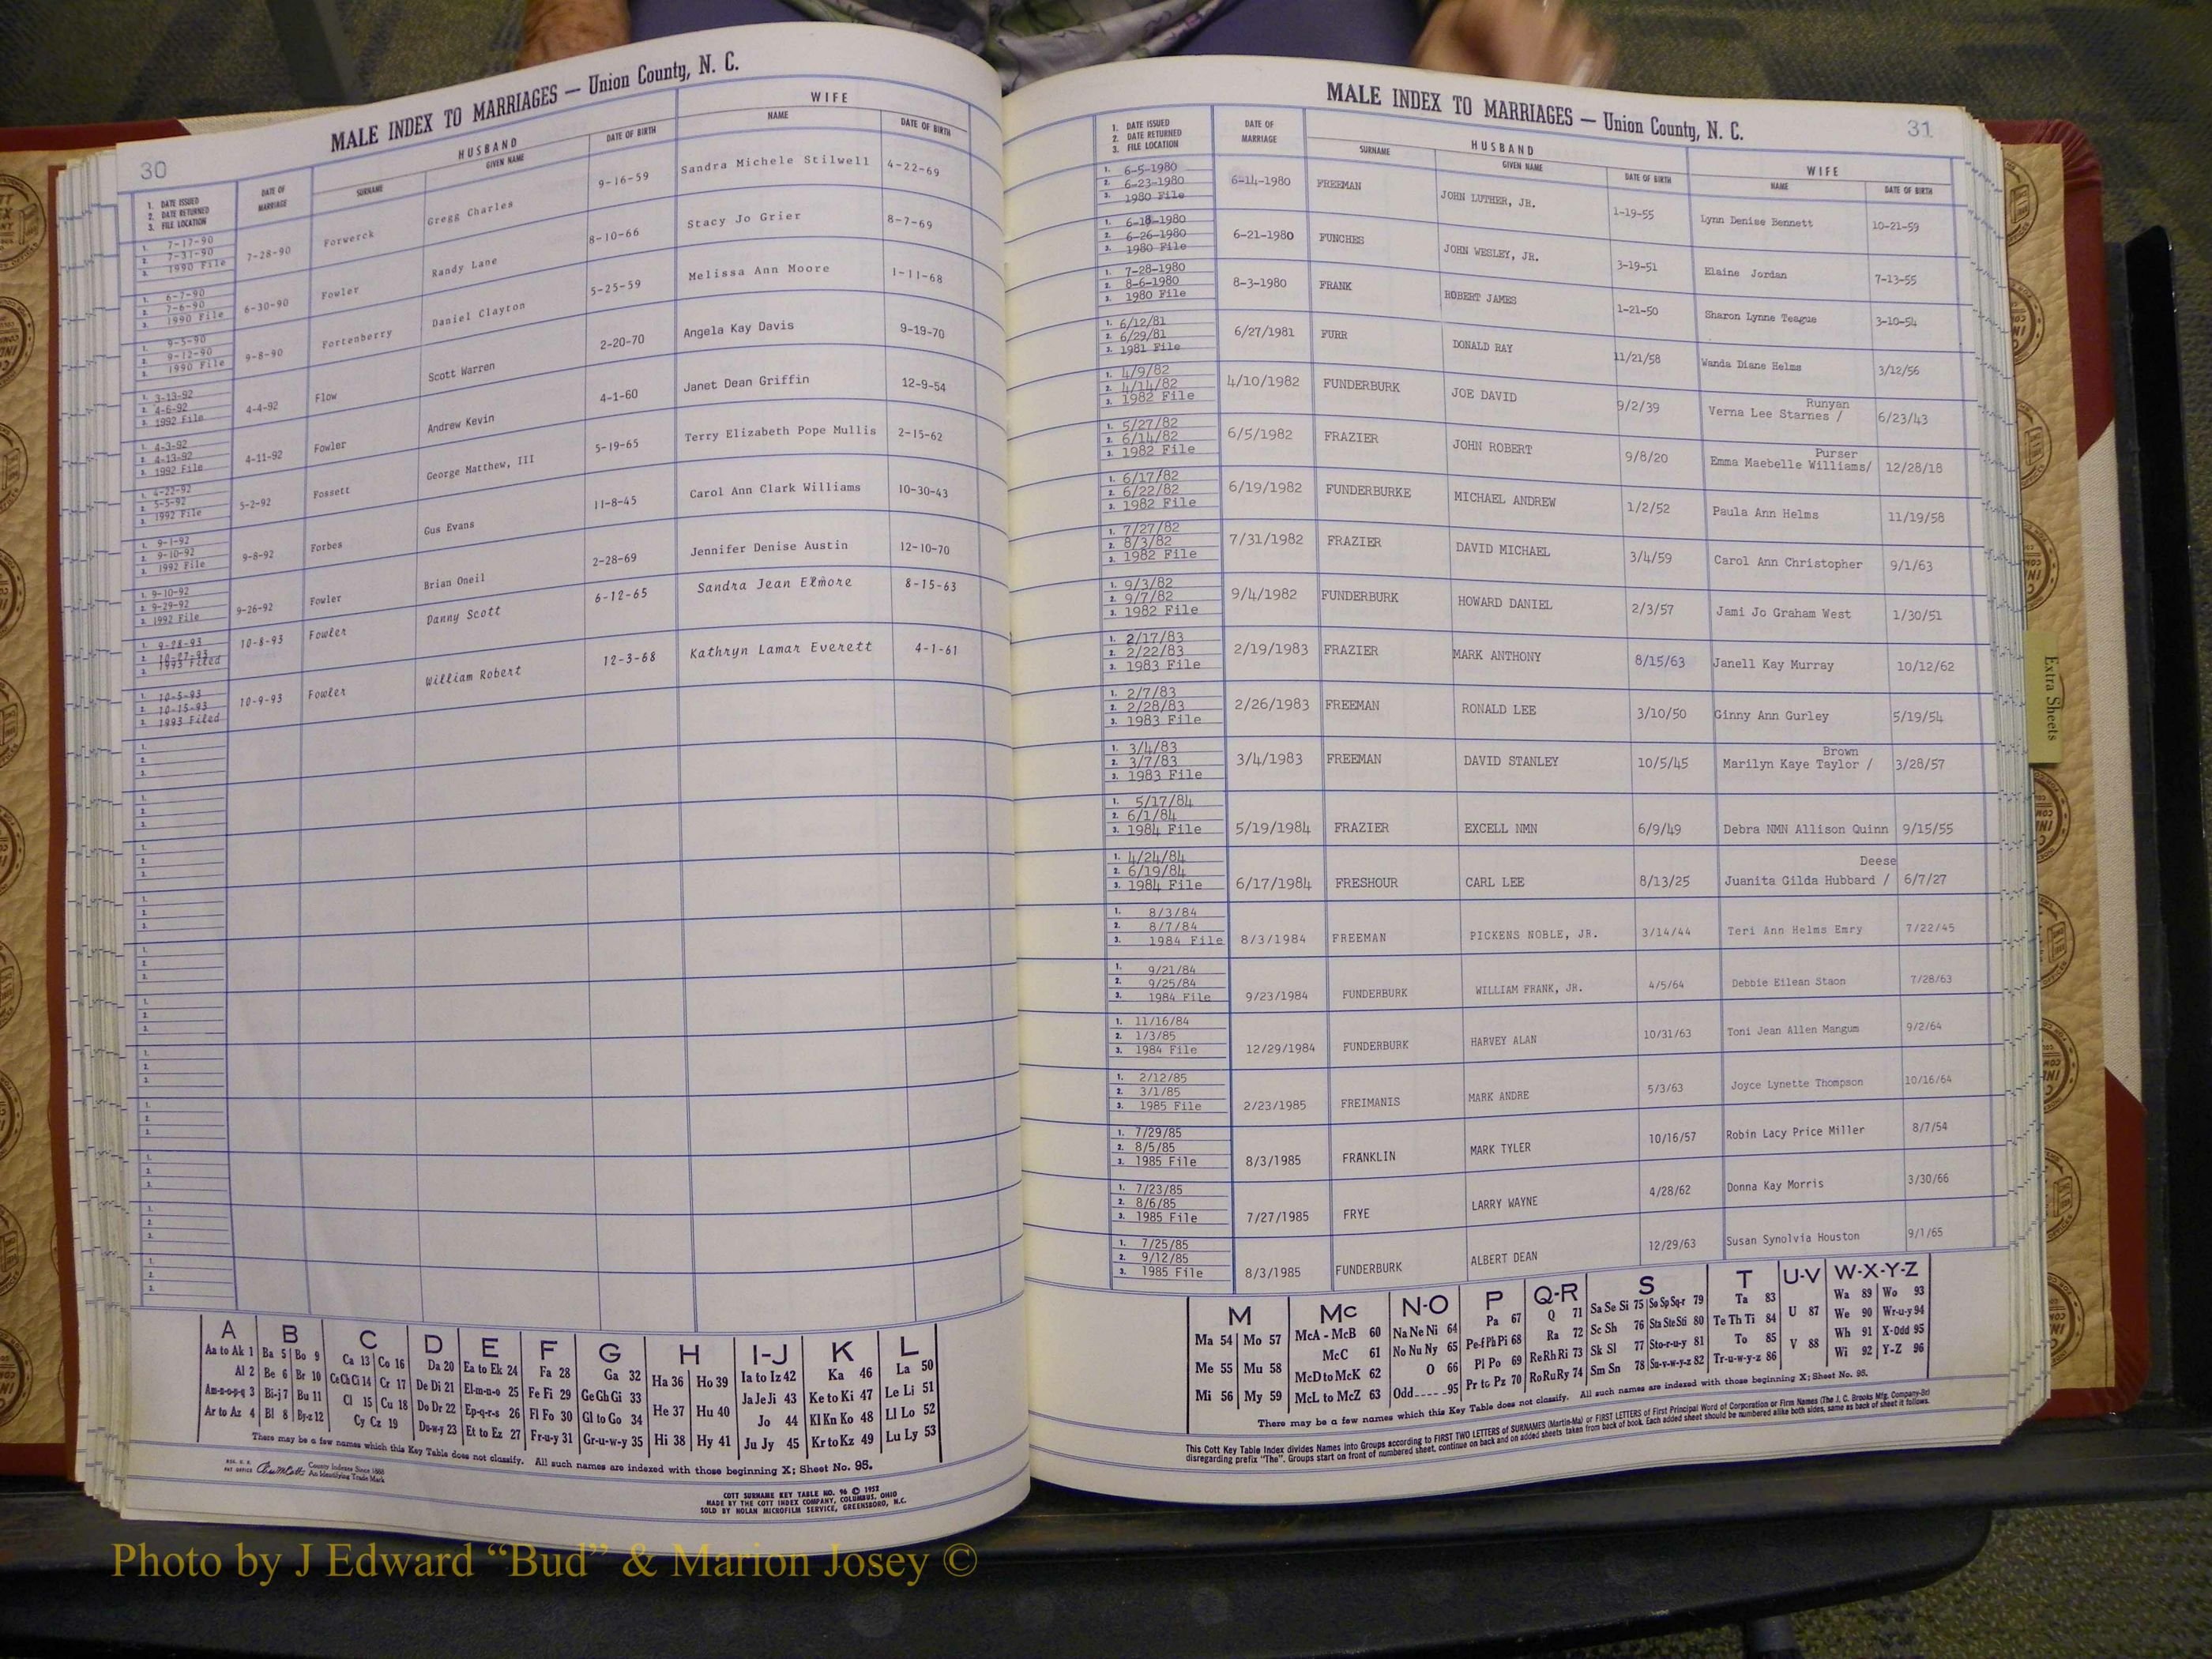 30
MALE INDEX TO MARRIAGES — Union County, N. C.
1. DATE ISSUED
2. DATE RETURNED
3. FILE LOCATION
DATE OF MARRIAGE
HUSBAND
SURNAME
GIVEN NAME
DATE OF BIRTH
WIFE
NAME
DATE OF BIRTH
1. 7-17-90
2. 7-31-90
3. 1990 File
7-28-90 Forwerck Gregg Charles 9-16-59 Sandra Michele Stilwell 4-22-69
1. 6-7-90
2. 7-6-90
3. 1990 File
6-30-90 Fowler Randy Lane 8-10-66 Stacy Jo Grier 8-7-69
1. 9-5-90
2. 9-12-90
3. 1990 File
9-8-90 Fortenberry Daniel Clayton 5-25-59 Melissa Ann Moore 1-11-68
1. 3-13-92
2. 4-6-92
3. 1992 File
4-4-92 Flow Scott Warren 2-20-70 Angela Kay Davis 9-19-70
1. 4-3-92
2. 4-13-92
3. 1992 File
4-11-92 Fowler Andrew Kevin 4-1-60 Janet Dean Griffin 12-9-54
1. 4-22-92
2. 5-5-92
3. 1992 File
5-2-92 Fossett George Matthew, III 5-19-65 Terry Elizabeth Pope Mullis 2-15-62
1. 9-1-92
2. 9-10-92
3. 1992 File
9-8-92 Forbes Gus Evans 11-8-45 Carol Ann Clark Williams 10-30-43
1. 9-10-92
2. 9-29-92
3. 1992 File
9-26-92 Fowler Brian Oneil 2-28-69 Jennifer Denise Austin 12-10-70
1. 9-28-93
2. 10-27-93
3. 1993 Filed
10-8-93 Fowler Danny Scott 6-12-65 Sandra Jean Elmore 8-15-63
1. 10-5-93
2. 10-15-93
3. 1993 Filed
10-9-93 Fowler William Robert 12-3-68 Kathryn Lamar Everett 4-1-61
A B C D E F G H I-J K L
Aa to Ak 1 Ba 5 Bo 9 Ca 13 Co 16 Da 20 Ea to Ek 24 Fa 28 Ga 32 Ha 36 Ho 39 Ia to Iz 42 Ka 46 La 50
Al 2 Be 6 Br 10 Ce Ch Ci 14 Cr 17 De Di 21 El-m-n-o 25 Fe Fi 29 Ge Gh Gi 33 He 37 Hu 40 Ja Je Ji 43 Ke to Ki 47 Le Li 51
Am-n-o-p-q 3 Bi-j 7 Bu 11 Cl 15 Cu 18 Do Dr 22 Ep-q-r-s 26 Fl Fo 30 Gl to Go 34 Hi 38 Hy 41 Jo 44 Kl Kn Ko 48 Ll Lo 52
Ar to Az 4 Bl 8 By-z 12 Cy Cz 19 Du-w-y 23 Et to Ez 27 Fr-u-y 31 Gr-u-w-y 35 Ju Jy 45 Kr to Kz 49 Lu Ly 53
There may be a few names which this Key Table does not classify. All such names are indexed with those beginning X; Sheet No. 95.
County Indexes Since 1888
An Identifying Trade Mark
COTT SURNAME KEY TABLE NO. 96 © 1952
MADE BY THE COTT INDEX COMPANY, COLUMBUS, OHIO
SOLD BY NOLAN MICROFILM SERVICE, GREENSBORO, N.C.
MALE INDEX TO MARRIAGES — Union County, N. C.
31
1. DATE ISSUED
2. DATE RETURNED
3. FILE LOCATION
DATE OF MARRIAGE
HUSBAND
SURNAME
GIVEN NAME
DATE OF BIRTH
WIFE
NAME
DATE OF BIRTH
1. 6-5-1980
2. 6-23-1980
3. 1980 File
6-14-1980 FREEMAN JOHN LUTHER, JR. 1-19-55 Lynn Denise Bennett 10-21-59
1. 6-18-1980
2. 6-26-1980
3. 1980 File
6-21-1980 FUNCHES JOHN WESLEY, JR. 3-19-51 Elaine Jordan 7-13-55
1. 7-28-1980
2. 8-6-1980
3. 1980 File
8-3-1980 FRANK ROBERT JAMES 1-21-50 Sharon Lynne Teague 3-10-54
1. 6/12/81
2. 6/29/81
3. 1981 File
6/27/1981 FURR DONALD RAY 11/21/58 Wanda Diane Helms 3/12/56
1. 4/9/82
2. 4/14/82
3. 1982 File
4/10/1982 FUNDERBURK JOE DAVID 9/2/39 Verna Lee Starnes / Runyan 6/23/43
1. 5/27/82
2. 6/14/82
3. 1982 File
6/5/1982 FRAZIER JOHN ROBERT 9/8/20 Emma Maebelle Williams/ Purser 12/28/18
1. 6/17/82
2. 6/22/82
3. 1982 File
6/19/1982 FUNDERBURKE MICHAEL ANDREW 1/2/52 Paula Ann Helms 11/19/58
1. 7/27/82
2. 8/3/82
3. 1982 File
7/31/1982 FRAZIER DAVID MICHAEL 3/4/59 Carol Ann Christopher 9/1/63
1. 9/3/82
2. 9/7/82
3. 1982 File
9/4/1982 FUNDERBURK HOWARD DANIEL 2/3/57 Jami Jo Graham West 1/30/51
1. 2/17/83
2. 2/22/83
3. 1983 File
2/19/1983 FRAZIER MARK ANTHONY 8/15/63 Janell Kay Murray 10/12/62
1. 2/7/83
2. 2/28/83
3. 1983 File
2/26/1983 FREEMAN RONALD LEE 3/10/50 Ginny Ann Gurley 5/19/54
1. 3/4/83
2. 3/7/83
3. 1983 File
3/4/1983 FREEMAN DAVID STANLEY 10/5/45 Marilyn Kaye Taylor / Brown 3/28/57
1. 5/17/84
2. 6/1/84
3. 1984 File
5/19/1984 FRAZIER EXCELL NMN 6/9/49 Debra NMN Allison Quinn 9/15/55
1. 4/24/84
2. 6/19/84
3. 1984 File
6/17/1984 FRESHOUR CARL LEE 8/13/25 Juanita Gilda Hubbard / Deese 6/7/27
1. 8/3/84
2. 8/7/84
3. 1984 File
8/3/1984 FREEMAN PICKENS NOBLE, JR. 3/14/44 Teri Ann Helms Emry 7/22/45
1. 9/21/84
2. 9/25/84
3. 1984 File
9/23/1984 FUNDERBURK WILLIAM FRANK, JR. 4/5/64 Debbie Eilean Staon 7/28/63
1. 11/16/84
2. 1/3/85
3. 1984 File
12/29/1984 FUNDERBURK HARVEY ALAN 10/31/63 Toni Jean Allen Mangum 9/2/64
1. 2/12/85
2. 3/1/85
3. 1985 File
2/23/1985 FREIMANIS MARK ANDRE 5/3/63 Joyce Lynette Thompson 10/16/64
1. 7/29/85
2. 8/5/85
3. 1985 File
8/3/1985 FRANKLIN MARK TYLER 10/16/57 Robin Lacy Price Miller 8/7/54
1. 7/23/85
2. 8/6/85
3. 1985 File
7/27/1985 FRYE LARRY WAYNE 4/28/62 Donna Kay Morris 3/30/66
1. 7/25/85
2. 9/12/85
3. 1985 File
8/3/1985 FUNDERBURK ALBERT DEAN 12/29/63 Susan Synolvia Houston 9/1/65
M Mc N-O P Q-R S T U-V W-X-Y-Z
Ma 54 Mo 57 McA - McB 60 Na Ne Ni 64 Pa 67 Q 71 Sa Se Si 75 So Sp Sq-r 79 Ta 83 U 87 Wa 89 Wo 93
Me 55 Mu 58 McC 61 No Nu Ny 65 Pe-f Ph Pi 68 Ra 72 Sc Sh 76 Sta Ste Sti 80 Te Th Ti 84 V 88 We 90 Wr-u-y 94
Mi 56 My 59 McD to McK 62 O 66 Pl Po 69 Re Rh Ri 73 Sk Sl 77 Sto-r-u-y 81 To 85 Wh 91 X-Odd 95
McL to McZ 63 Odd 95 Pr to Pz 70 Ro Ru Ry 74 Sm Sn 78 Su-v-w-y-z 82 Tr-u-w-y-z 86 Wi 92 Y-Z 96
There may be a few names which this Key Table does not classify. All such names are indexed with those beginning X; Sheet No. 95.
This Cott Key Table Index divides Names into Groups according to FIRST TWO LETTERS of SURNAMES (Martin-Ma) or FIRST LETTERS of First Principal Word of Corporation or Firm Names (The J. C. Brooks Mfg. Company-Br)
disregarding prefix "The". Groups start on front of numbered sheet, continue on back and on added sheets taken from back of book. Each added sheet should be numbered alike both sides, same as back of sheet it follows.
Extra Sheets
Photo by J Edward “Bud” & Marion Josey ©